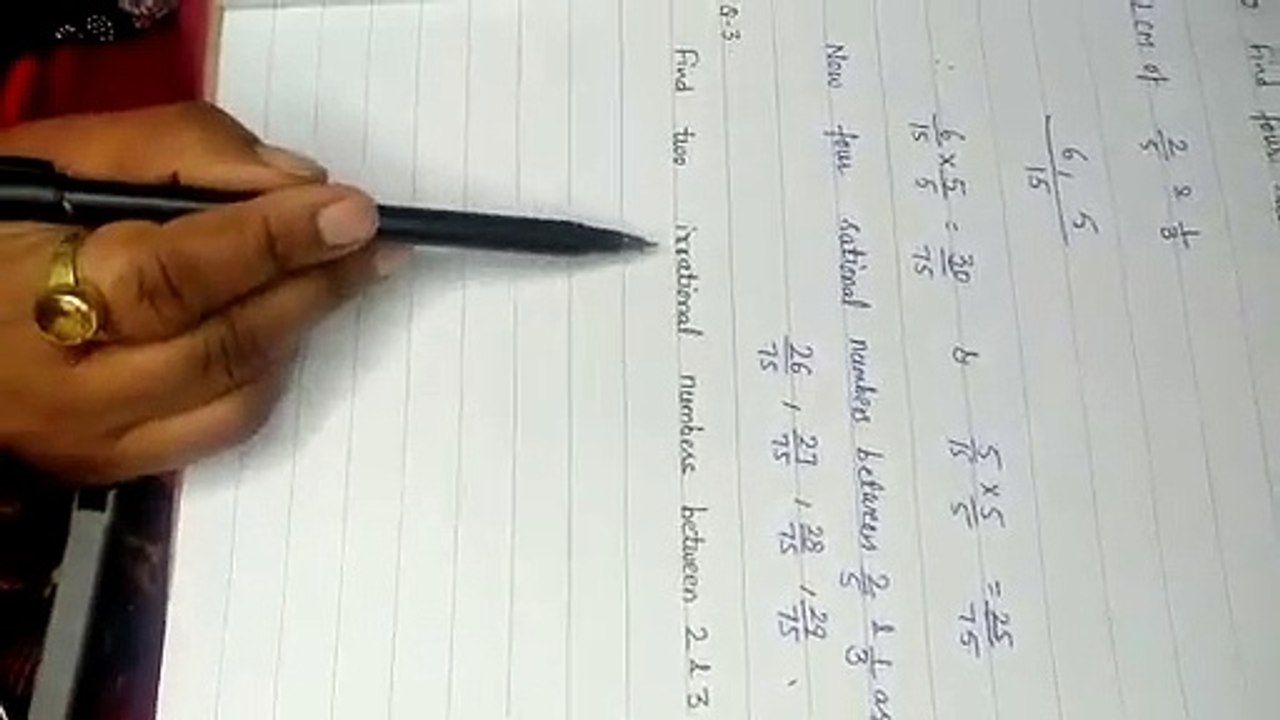 Find four
LCM of 2/5 & 1/3
6, 5
15
∴ 6/15 × 5/5 = 30/75 & 5/15 × 5/5 = 25/75
Now four rational number between 2/5 & 1/3 as
26/75, 27/75, 28/75, 29/75,
Q-3
Find two irrational numbers between 2 & 3